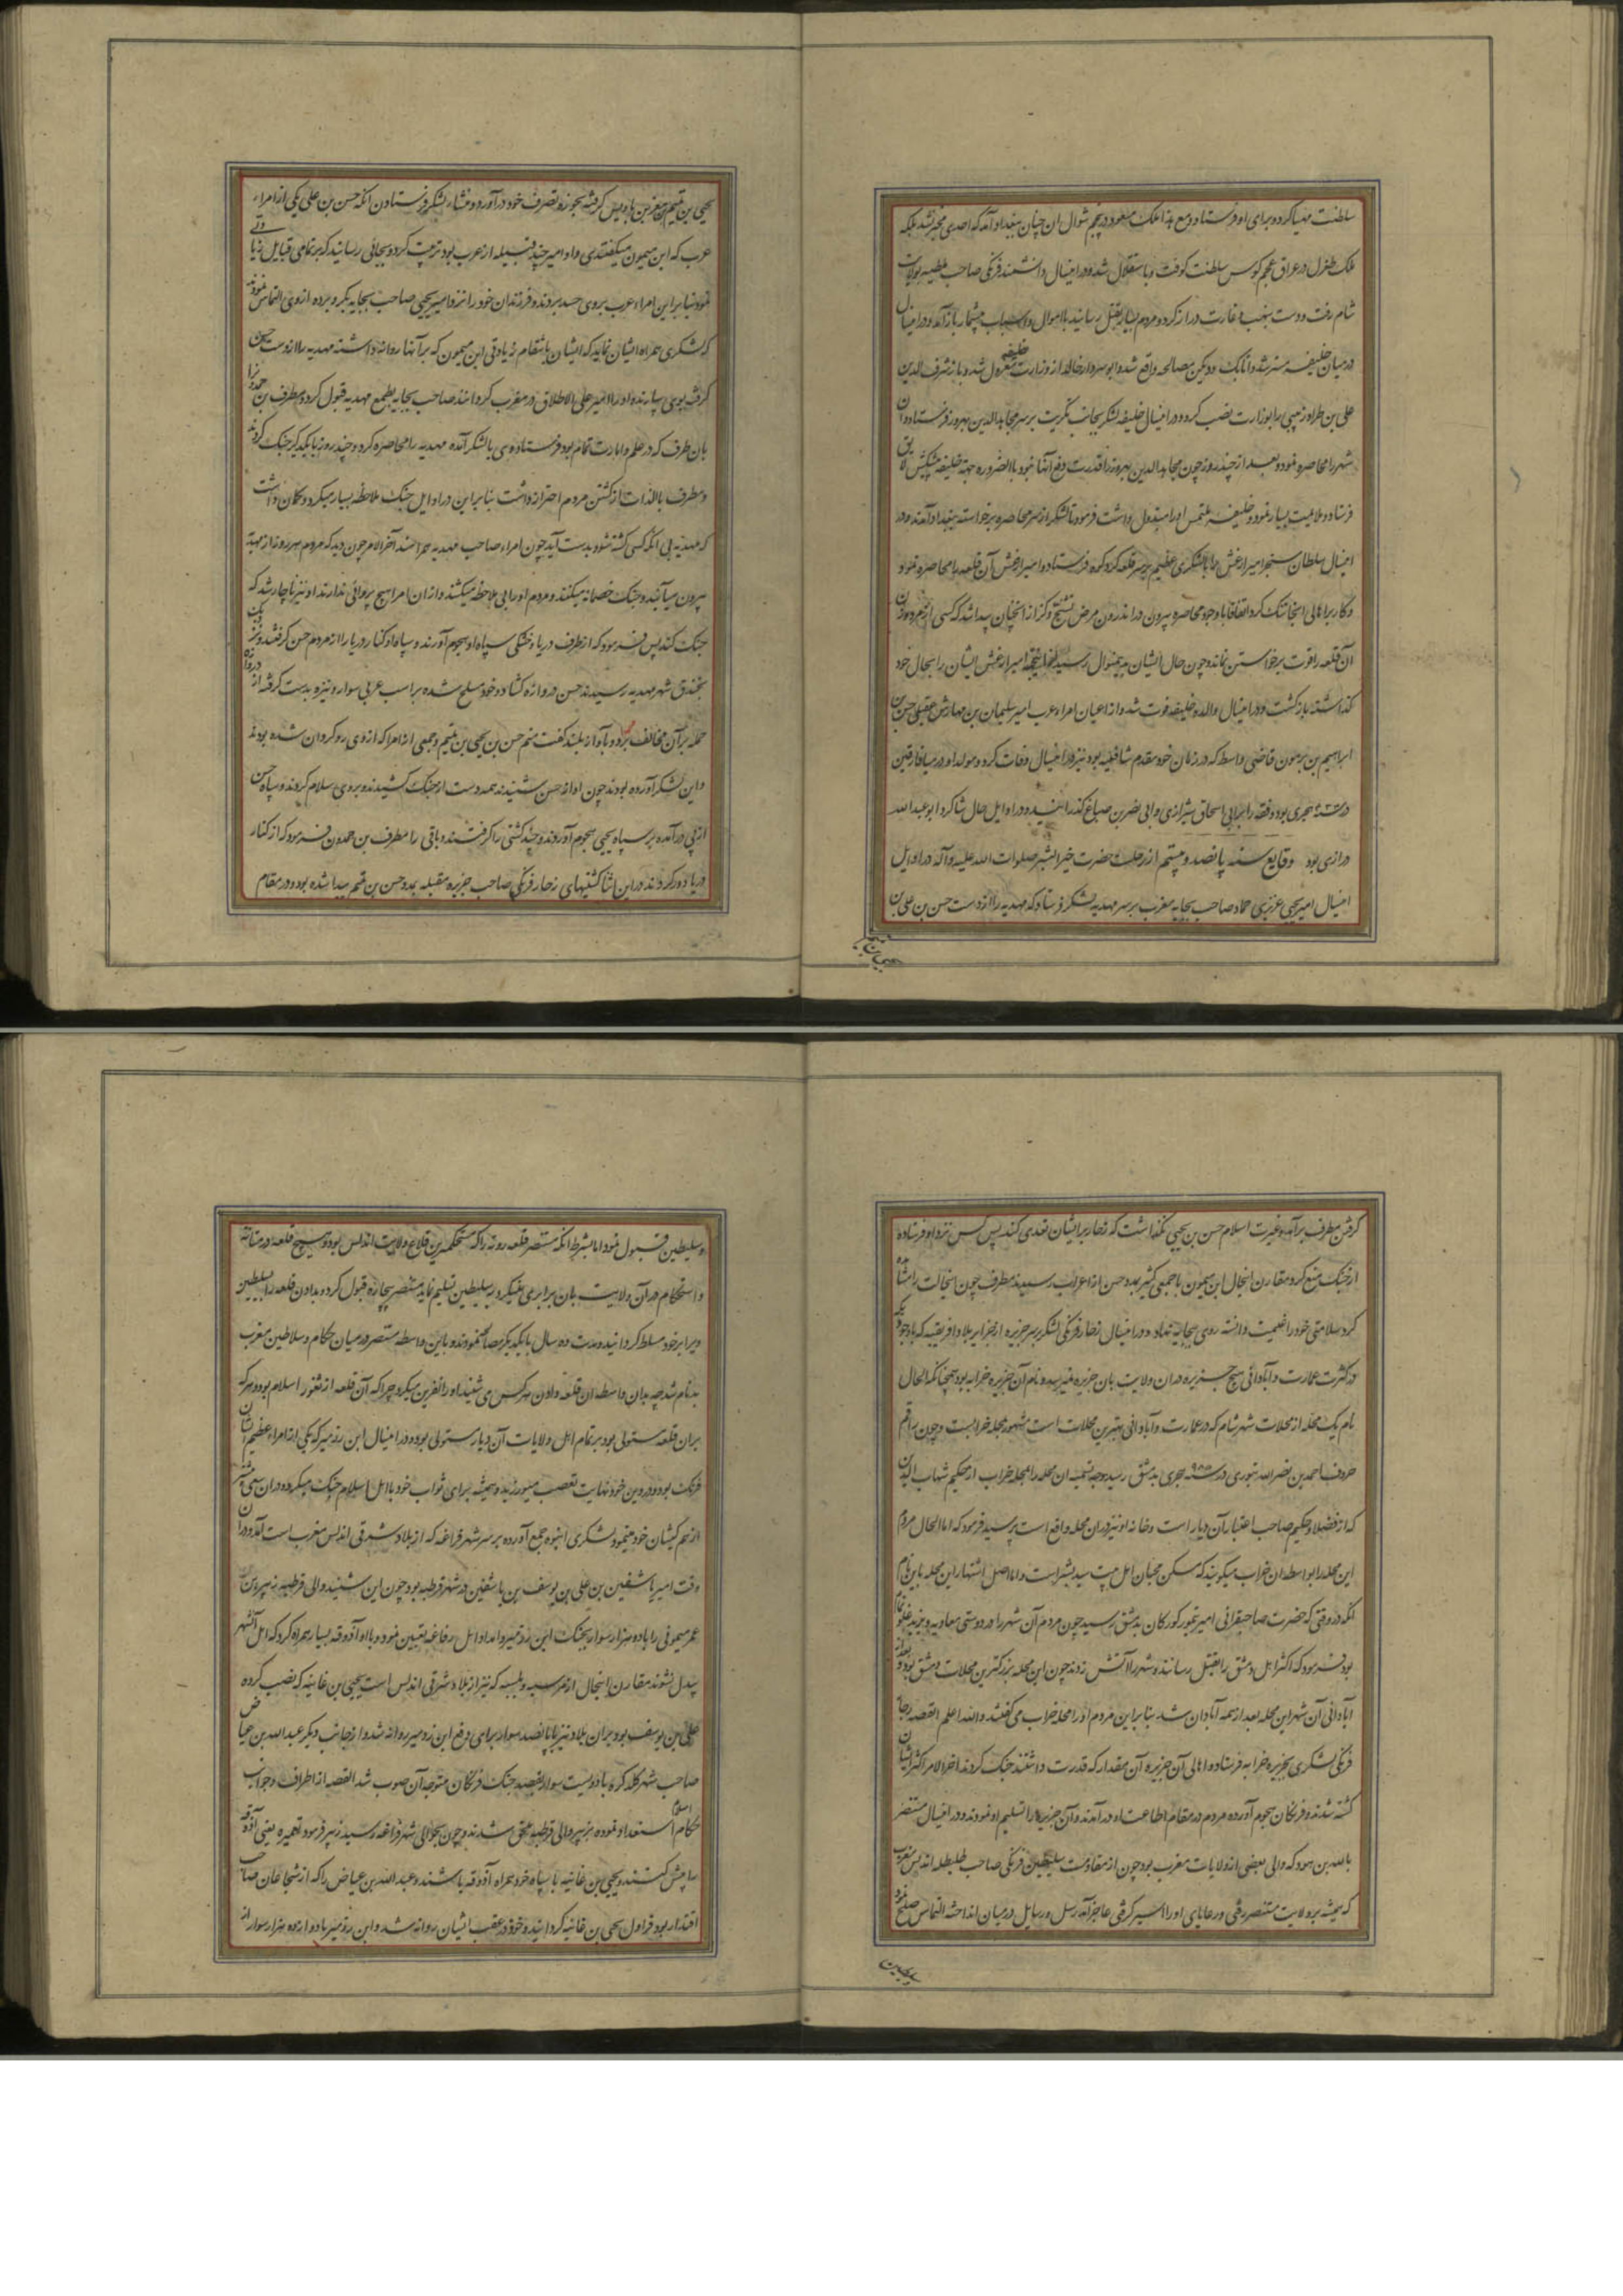 سلطنت مهیا کرده برای او فرستاد و مع هذا ملک مسعود در پنجم شوال ان چنان ببغداد آمد که احدی مخبر نشد بلکه
ملک طغرل در عراق عجم کوس سلطنت کوفت و باستقلال شد و در اینسال دانشمند فرنکی صاحب ملطیه بولایت
شام رفت و دست بنهب و غارت دراز کرد و مردم بسیار بقتل رسانید با اموال و اسباب بیشمار باز آمد و در اینسال
در میان خلیفه مسترشد و اتابک مصالحه واقع شد و ابو خالد از وزارت خلیفه معزول شد و باز شرف الدین
علی بن طراد زینبی را بوزارت نصب کرد و در اینسال خلیفه لشکر بجانب تکریت بر سر مجاهد الدین بهروز فرستاد و ان
شهر را محاصره نمود و بعد از چند روز چون مجاهد الدین بهروز را قدرت دفع آنها نبود بالضروره جهة خلیفه پیشکش لایق
فرستاد و ملایمت بسیار نمود و خلیفه ملتمس او را مبذول داشت فرمود تا لشکر از سر محاصره برخواسته ببغداد آمدند و در
اینسال سلطان سنجر امیر ارغش را با لشکری عظیم بر سر قلعه کرد کوه فرستاد و امیر ارغش آن قلعه را محاصره نمود
و کار بر اهالی انجا تنک کرد اتفاقا با وجود محاصره بیرون در اندرون مرض تشنج و کزاز انچنان پیدا شد که کسی از مردم و زنان
آن قلعه را قوت برخواستن نماند و چون حال ایشان بدینمنوال رسید امیر ارغش ایشان را بحال خود
کذاشته باز کشت و در اینسال والده خلیفه فوت شد و از اعیان امراء عرب امیر سلیمان بن مهارش عقیلی حسن بن
ابراهیم بن برهون قاضی واسط که در زمان خود مقدم شافعیه بود نیز در اینسال وفات کرد و مولد او در میافارقین
در سنه هجری بود و فقه را بر ابی اسحاق شیرازی و ابی نصر بن صباغ کذرانیده و در اوایل حال شاکرد ابو عبد الله
درازی بود وقایع سنه پانصد و بیستم از رحلت حضرت خیر البشر صلوات الله علیه و آله در اوایل
اینسال امیر یحیی عزیزی حماد صاحب بجایه مغرب بر سر مهدیه لشکر فرستاد که مهدیه را از دست حسن بن علی بن
یحیی بن تمیم بن معز بن بادیس کرفته بحوزه تصرف خود در آورد و منشاء لشکر فرستادن آنکه حسن بن علی یکی از امراء
عرب که ابن میمون میکفتندی و او امیر چند قبیله از عرب بود تربیت کرد و بجائی رسانید که بر تمامی قبایل زیادتی
نمود بنابراین امراء عرب بر وی حسد بردند و فرزندان خود را نزد امیر یحیی صاحب بجایه بکرو برده از وی التماس نمودند
که لشکری همراه ایشان نماید که ایشان بانتقام زیادتی ابن میمون که بر آنها روا داشته مهدیه را از دست حسن
کرفته بوی سپارند و او را امیر علی الاطلاق در مغرب کردانند صاحب بجایه بطمع مهدیه قبول کرد و مطرف بن حمدون را
بان طرف که در علم و امارت تمام بود فرستاد وی با لشکر آمده مهدیه را محاصره کرد و چند روز با یکدیکر جنک کردند
و مطرف بالذات از کشتن مردم احتراز داشت بنابراین در اوایل جنک ملاحظه بسیار میکرد و کمان داشت
که مهدیه بی انکه کسی کشته شود بدست آید چون امراء صاحب مهدیه همراهند آخر الامر چون دید که مردم هر روز از مهدیه
بیرون میآیند و جنک خصمانه میکنند و مردم او را بی ملاحظه میکشند و از ان امرا هیچ پروائی ندارند او نیز ناچار شد که
جنک کند پس فرمود که از طرف دریا و خشکی سپاه او هجوم آورند و سپاه او کنار دریا را از مردم حسن کرفتند و نزدیک
بخندق شهر مهدیه رسیدند حسن دروازه کشاد و خود مسلح شده بر اسب عربی سوار و نیزه بدست کرفته از دروازه
حمله بر آن مخالف برد و بآواز بلند کفت منم حسن بن یحیی بن تمیم و جمعی از امرا که از وی رو کردان شده بودند
و این لشکر آورده بودند چون اواز حسن شنیدند همه دست از جنک کشیدند و بر وی سلام کردند و سپاه حسن
از پی در آمده بر سپاه یحیی هجوم آوردند و چند کشتی را کرفتند و باقی را مطرف بن حمدون فرمود که از کنار
دریا دور کردند در این اثنا کشتیهای زحار فرنکی صاحب جزیره صقیلیه بمدد حسن بن تمیم پیدا شده بود و در مقام
کرفتن مطرف بر آمد و غیرت اسلام حسن بن یحیی نکذاشت که زحار بر ایشان تعدی کند پس کس نزد او فرستاده
از جنک منع کرد و مقارن اینحال ابن میمون با جمعی کثیر بمدد حسن از اعراب رسیدند مطرف چون اینحالت را مشاهده
کرد سلامتی خود را غنیمت دانسته روی ببجایه نهاد و در اینسال زحار فرنکی لشکر بر سر جزیره از جزایر بلاد افریقیه که با وجود یکه
در کثرت عمارت و آبادانی هیچ جزیره در ان ولایت بان جزیره نمیرسید و نام آن جزیره خرابه بود همچنانکه الحال
نام یک محله از محلات شهر شام که در عمارت و آبادانی بهترین محلات است مشهور بمحله خرابست و چون راقم
حروف احمد بن نصر الله تتوی در سنه ۹۸۵ هجری بدمشق رسید وجه تسمیه ان محله را بمحله خراب از حکیم شهاب الدین
که از فضلا و حکیم صاحب اعتبار آن دیار است و خانه او نیز در ان محله واقع است پرسید فرمود که اما الحال مردم
این محله را بواسطه ان خراب میکویند که مسکن محبان اهل بیت سید بشر است و اما اصل اشتهار این محله باین نام
انکه در وقتی که حضرت صاحبقرانی امیر تیمور کورکان بدمشق رسید چون مردم آن شهر را در دوستی معاویه و یزید غلو تمام
بود فرمود که اکثر اهل دمشق را بقتل رسانند و شهر را آتش زدند چون این محله بزرکترین محلات دمشق بود و بعد از
آبادانی آن شهر این محله بعد از همه آبادان شد بنابراین مردم او را محله خراب می کفتند و الله اعلم القصه زحار
فرنکی لشکری بجزیره خرابه فرستاد و اهالی آن جزیره آن مقدار که قدرت داشتند جنک کردند اخر الامر اکثر ایشان
کشته شدند و فرنکان هجوم آورده مردم در مقام اطاعت او در آمدند و آن جزیره را تسلیم او نمودند و در اینسال مستنصر
بالله بن هود که والی بعضی از ولایات مغرب بود چون از مقاومت سلیطین فرنکی صاحب طلیطله اندلس مغرب
که همیشه بر ولایت مستنصر رفتی و رعایای او را اسیر کرفتی عاجز آمد رسل و رسایل در میان انداخته التماس صلح نمود
و سلیطین قبول نمود اما بشرط انکه مستنصر قلعه روته را که مستحکمترین قلاع ولایت اندلس بود و هیچ قلعه در متانت
و استحکام در آن ولایت بان برابری نمیکرد بسلیطین تسلیم نماید مستنصر بیچاره قبول کرد و بدادن قلعه سلیطین
را بر خود مسلط کردانید و مدت ده سال با یکدیکر مصالحه نمودند و باین واسطه مستنصر در میان حکام و سلاطین مغرب
بدنام شد چه بدان واسطه ان قلعه دادن هر کس می شنید او را نفرین میکرد چرا که آن قلعه از ثغور اسلام بود و هر که
بران قلعه مستولی بود بر تمام اهل ولایات آن دیار مستولی بود و در اینسال ابن ردمیر که یکی از امراء عظیم الشان
فرنک بود و در دین خود نهایت تعصب میورزید و همیشه برای ثواب خود با اهل اسلام جنک میکرد و در ان سعی بیشتر
از هم کیشان خود مینمود لشکری انبوه جمع آورده بر سر شهر فراغه که از بلاد شرقی اندلس مغرب است آمد و در ان
وقت امیر تاشفین بن علی بن یوسف بن تاشفین در شهر قرطبه بود چون این شنید والی قرطبه زبیر بن
عمر میمونی را با دو هزار سوار بجنک ابن ردمیر و امداد اهل فراغه تعیین نمود و با او آذوقه بسیار همراه کرد که اهل آنشهر
بیدل نشوند مقارن اینحال از مرسیه و بلنسیه که نیز از بلاد شرقی اندلس است یحیی بن غانیه که نصب کرده
علی بن یوسف بود بران بلاد نیز با پانصد سوار برای دفع ابن ردمیر روانه شد و از جانب دیکر عبد الله بن عیاض
صاحب شهر لکره با دویست سوار بقصد جنک فرنکان متوجه آن صوب شد القصه از اطراف و جوانب
حکام اسلام استعداد نموده بزبیر والی قرطبه ملحق شدند و چون بحوالی شهر فراغه رسید زبیر فرمود تا میره یعنی آذوقه
را پیش کشند و یحیی بن غانیه با سپاه خود همراه آذوقه باشند و عبد الله بن عیاض را که از شجاعان صاحب
اقتدار بود قراول یحیی بن غانیه کردانید و خود در عقب ایشان روانه شد و ابن ردمیر با دوازده هزار سوار از